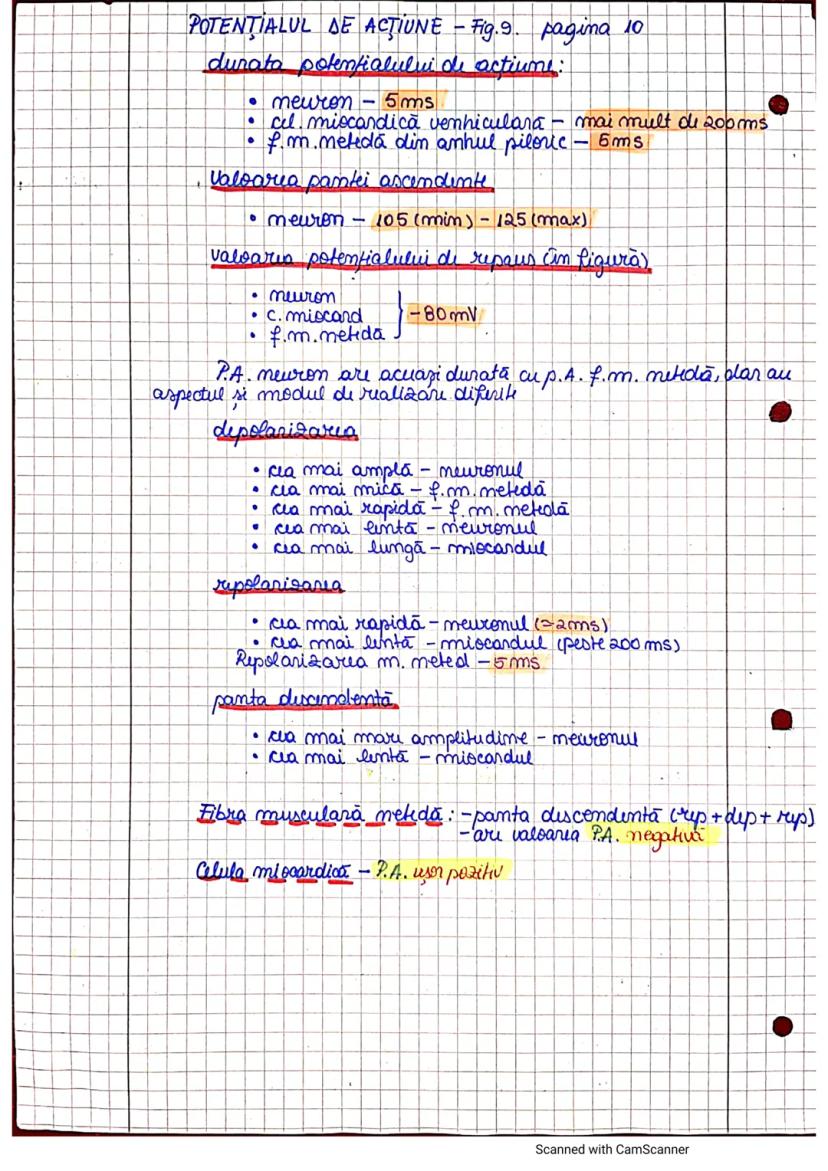 POTENȚIALUL DE ACȚIUNE – Fig.9. pagina 10
durata potențialului de acțiune:
• neuron – 5ms
• cel. miocardică ventriculară – mai mult de 200ms
• f.m. netedă din antrul piloric – 5ms
valoarea pantei ascendente
• neuron – 105 (min) – 125 (max)
valoarea potențialului de repaus (în figură)
• neuron
• c. miocard } –80mV
• f.m. netedă
P.A. neuron are aceeași durată cu p.A. f.m. netedă, dar au
aspectul și modul de realizare diferite
depolarizarea
• cea mai amplă – neuronul
• cea mai mică – f.m. netedă
• cea mai rapidă – f.m. netedă
• cea mai lentă – neuronul
• cea mai lungă – miocardul
repolarizarea
• cea mai rapidă – neuronul (≃2ms)
• cea mai lentă – miocardul (peste 200 ms)
Repolarizarea m. neted – 5ms
panta descendentă
• cea mai mare amplitudine – neuronul
• cea mai lentă – miocardul
Fibra musculară netedă: – panta discendentă (rep + dep + rep)
– are valoarea P.A. negativă
Celula miocardică – P.A. ușor pozitiv
Scanned with CamScanner